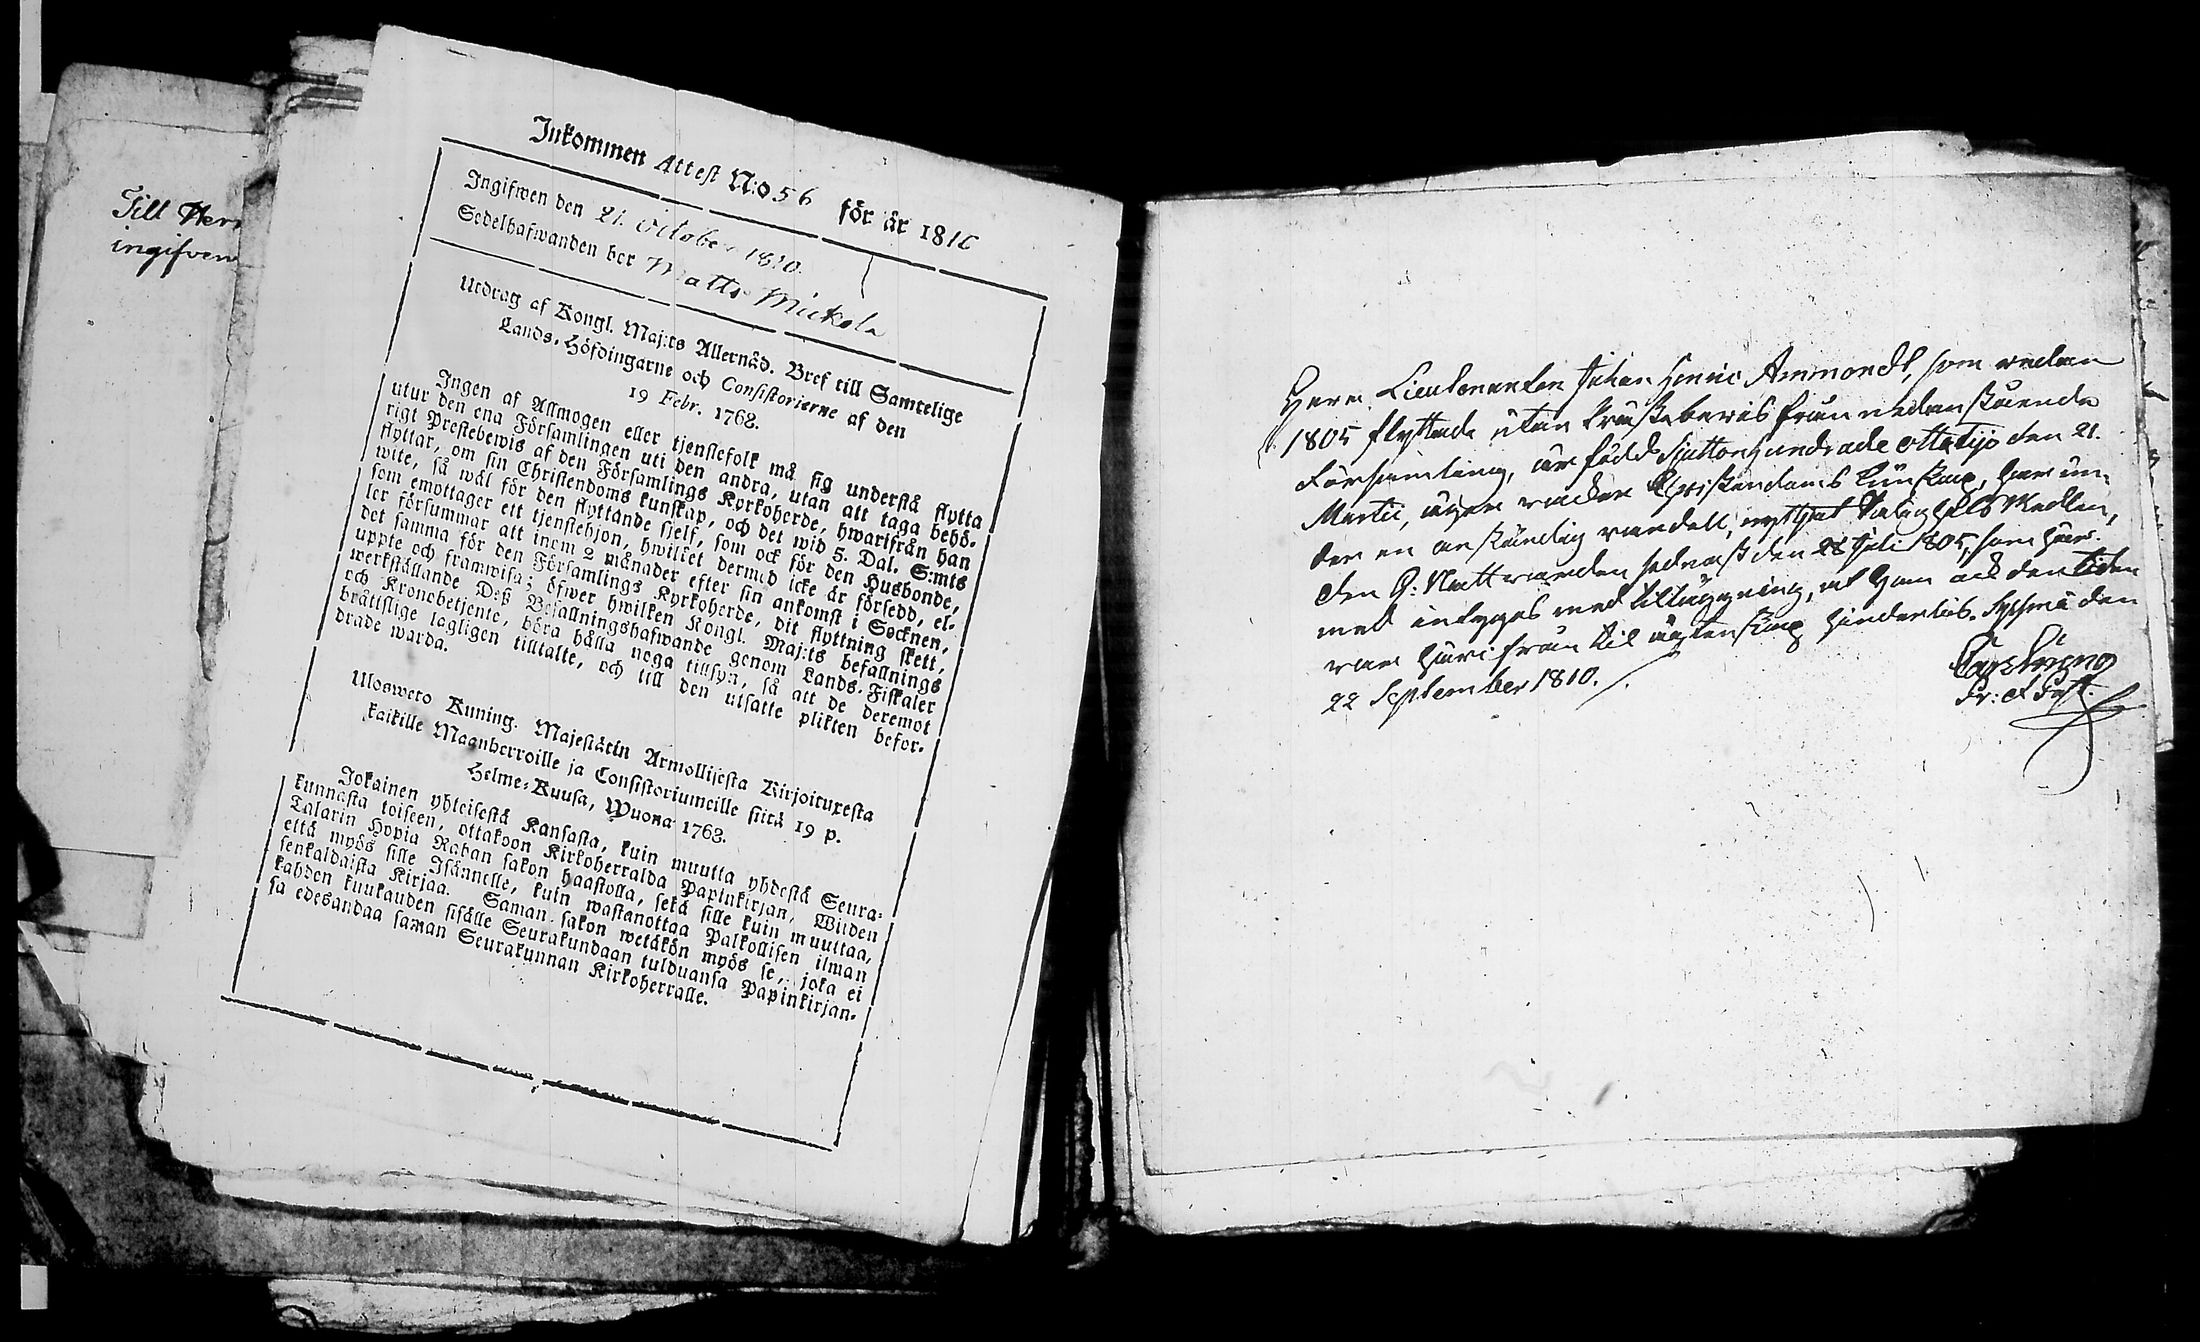 Till Herr
ingifven
Inkommen Attest N:o 56 för år 1810
Ingifwen den 21. October 1810.
Sedelhafwanden ber Matts Mickola
Utdrag af Kongl. Maj:ts Allernåd. Bref till Samtelige
Lands-Höfdingarne och Consistorierne af den
19 Febr. 1768.
Ingen af Allmogen eller tjenstefolk må sig understå flytta
utur den ena Församlingen uti den andra, utan att taga behö-
rigt Prestebewis af den Församlings Kyrkoherde, hwarifrån han
flyttar, om sin Christendoms kunskap, och det wid 5. Dal. S:mts
wite, så wäl för den flyttande sjelf, som ock för den Husbonde,
som emottager ett tjenstehjon, hwilket dermed icke är försedd, el-
ler försummar att inom 2 månader efter sin ankomst i Socknen,
det samma för den Församlings Kyrkoherde, dit flyttning skett,
uppte och framwisa; öfwer hwilken Kongl. Maj:ts befallnings
werkställande Deß Befallningshafwande genom Lands-Fiskaler
och Kronobetjente, böra hålla noga tillsyn, så att de deremot
bråttslige lagligen tilltalte, och till den utsatte plikten befor-
drade warda.
Ulosweto Kuning. Majestätin Armollisesta Kirjoituxesta
kaikille Maanherroille ja Consistoriumeille siitä 19 p.
Helme-Kuusa, Wuona 1768.
Jokainen yhteisestä Kansasta, kuin muutta yhdestä Seura-
kunnasta toiseen, ottakoon Kirkoherralda Papinkirjan, Wiiden
Talarin Hopia Rahan sakon haastolla, sekä sille kuin muuttaa,
että myös sille Isännelle, kuin wastanottaa Palkollisen ilman
senkaldaista Kirjaa. Saman sakon wetäkön myös se, joka ei
kahden kuukauden sisälle Seurakundaan tulduansa Papinkirjan-
sa edesandaa saman Seurakunnan Kirkoherralle.
Herr Lieutenanten Johan Henric Ammondt, som redan
1805 flyttade utan Prästebevis från nedanstående
Församling, är född Sjuttonhundrade ottatijo den 21.
Martii, äger vacker Christendoms Kunskap, har un-
der en anständig vandell, nyttjat Salighets Medlen,
den H: Nattvarden sednast den 28 Juli 1805, som här-
med intygas med tilläggning, at han ock den tiden
var härifrån til ägtenskap hinderlös. Sysmä den
22 September 1810.